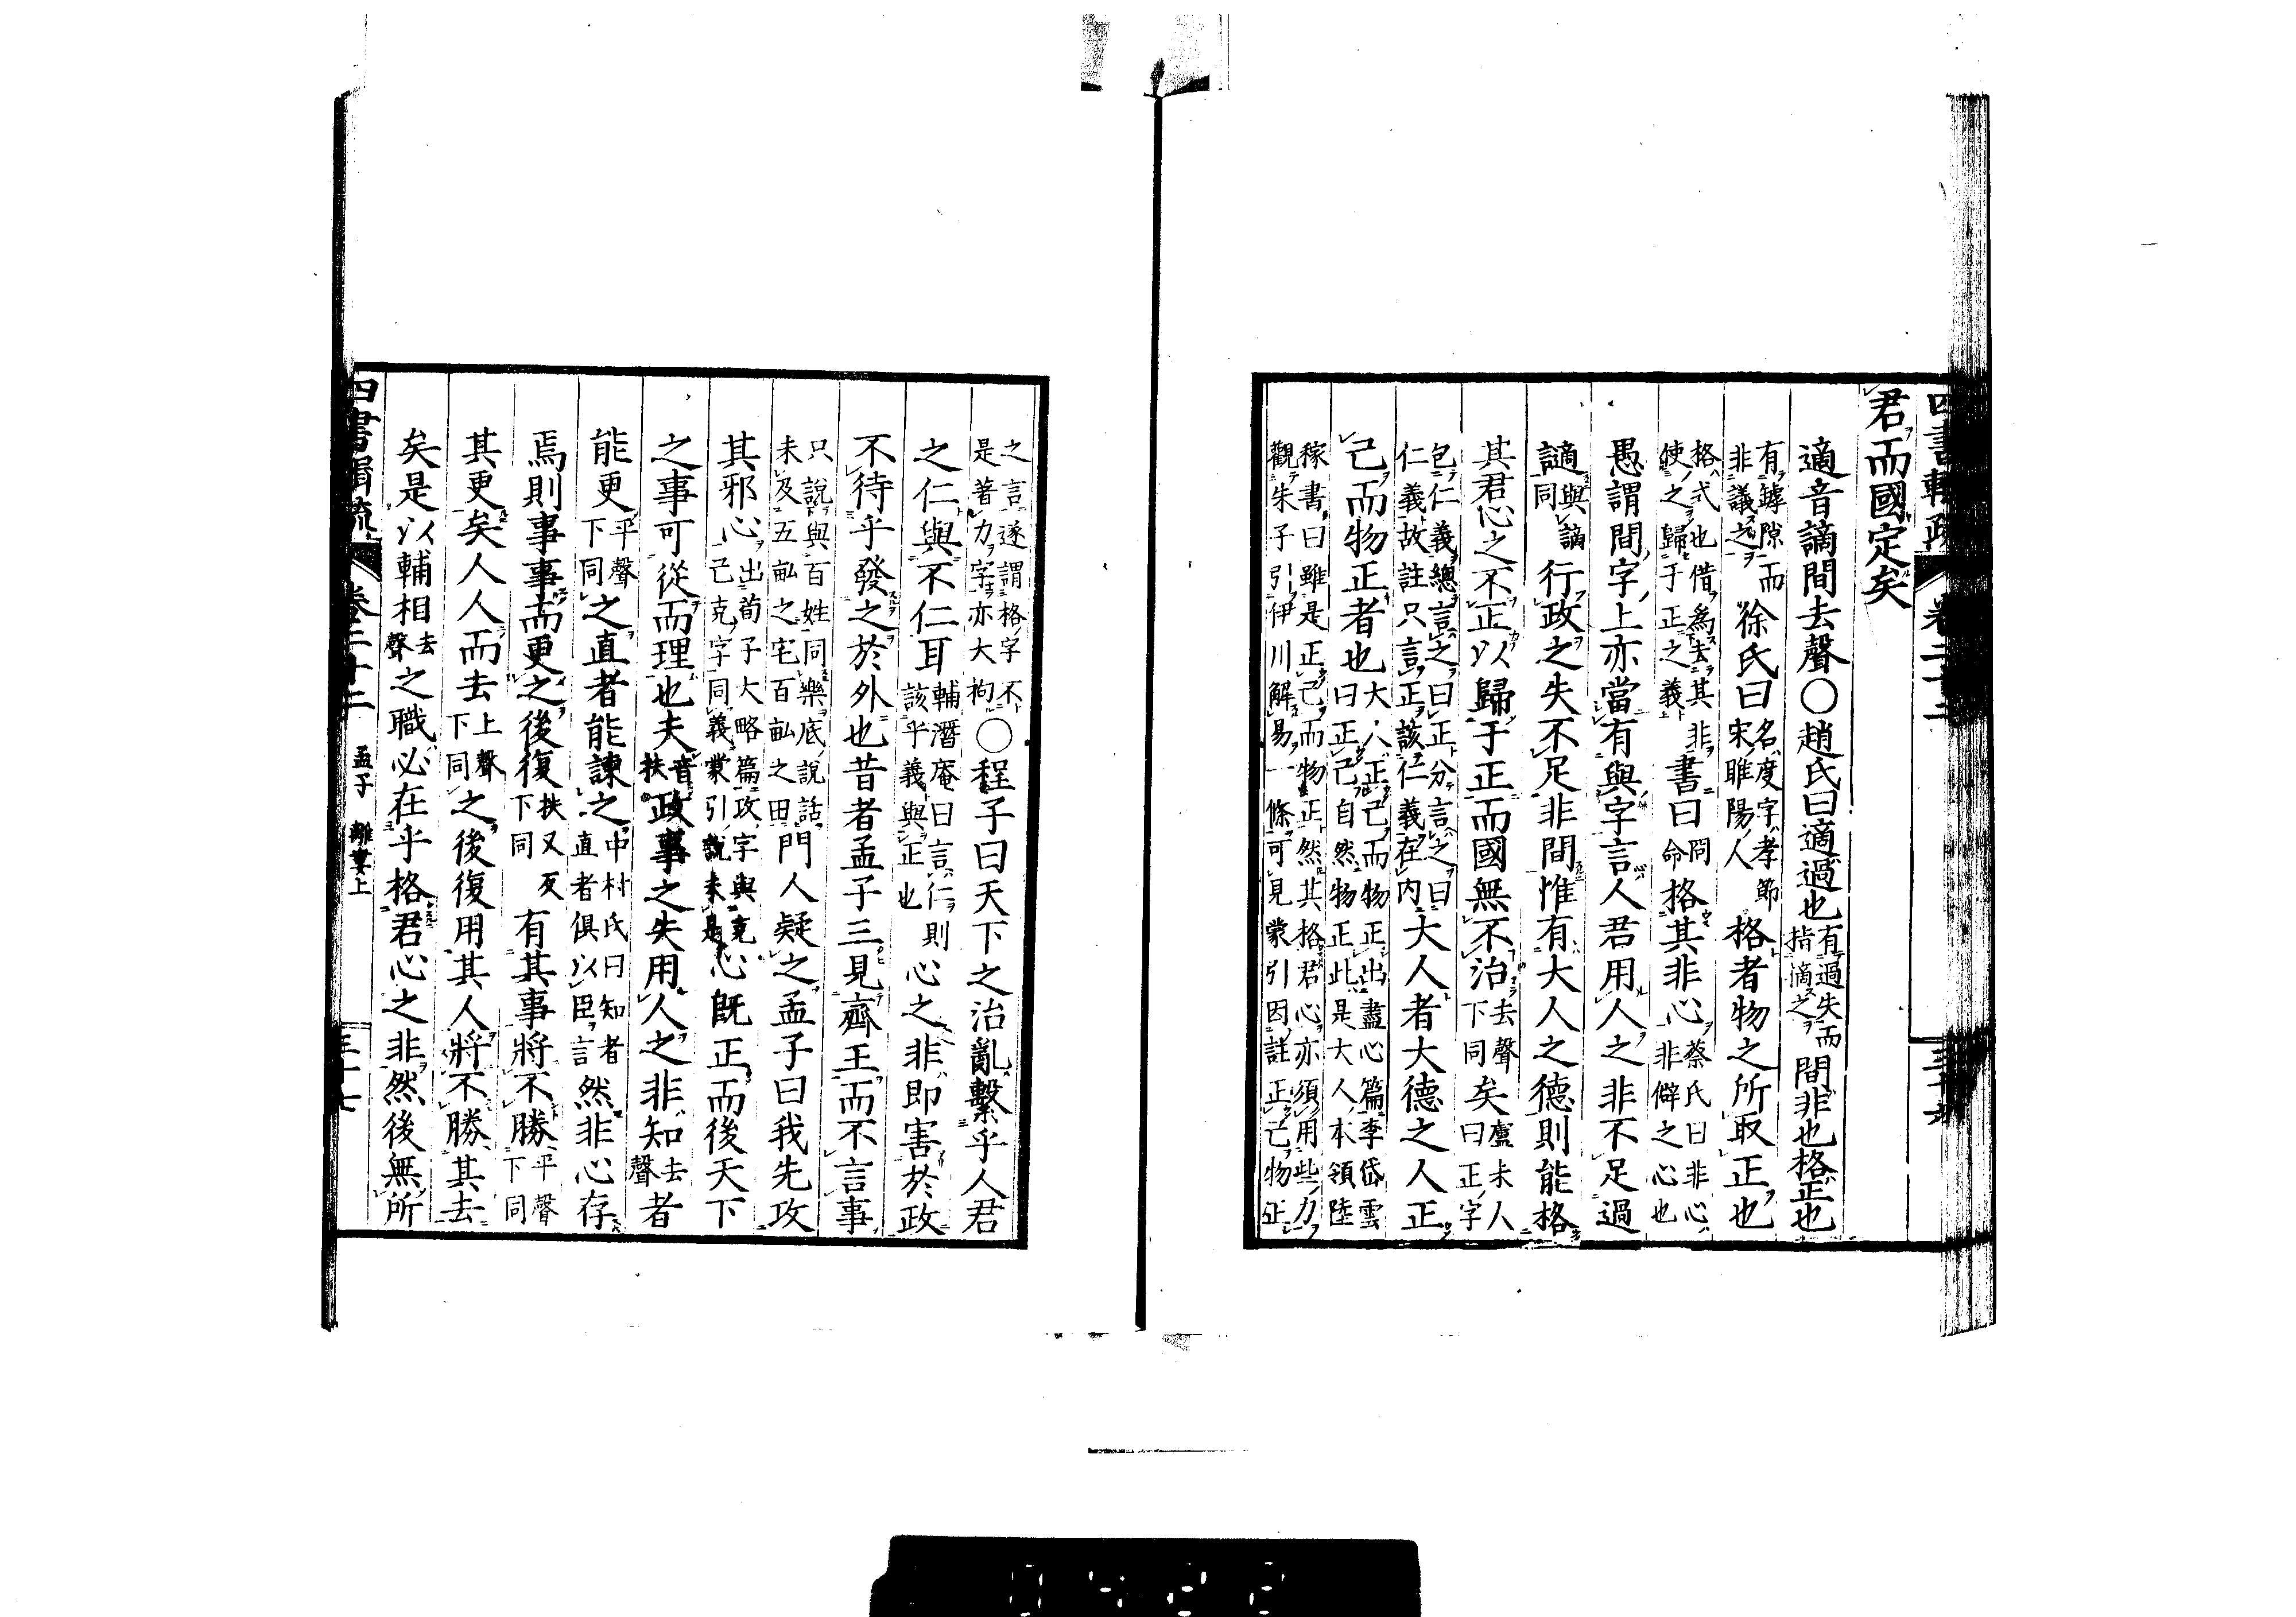 四書輯疏　卷二十二
君而國定矣
適音謫間去聲○趙氏曰適過也有過失而指謫之間非也格正也
有罅隙而非議之徐氏曰名度字孝節宋睢陽人格者物之所取正也
格式也借爲去其非使之歸于正之義書曰冏命格其非心蔡氏曰非心非僻之心也
愚謂間字上亦當有與字言人君用人之非不足過
謫與謫同行政之失不足非間惟有大人之德則能格
其君心之不正以歸于正而國無不治去聲下同矣盧未人曰正字
包仁義總言之曰正分言之曰仁義故註只言正該仁義在內大人者大德之人正
己而物正者也大人正己而物正出盡心篇李岱雲曰正己自然物正此是大人本領陸
稼書曰雖是正己而物正然其格君心亦須用些力觀朱子引伊川解易一條可見蒙引因註正己物正
之言遂謂格字不是著力字亦大拘○程子曰天下之治亂繫乎人君
之仁與不仁耳輔潛庵曰言仁則該乎義與正也心之非即害於政
不待乎發之於外也昔者孟子三見齊王而不言事
只說與百姓同樂底說話未及五畝之宅百畝之田門人疑之孟子曰我先攻
其邪心出荀子大略篇攻字與克己克字同義蒙引說未是心既正而後天下
之事可從而理也夫音扶政事之失用人之非知去聲者
能更平聲下同之直者能諫之中村氏曰知者直者俱以臣言然非心存
焉則事事而更之後復扶又反下同有其事將不勝平聲下同
其更矣人人而去上聲下同之後復用其人將不勝其去
矣是以輔相去聲之職必在乎格君心之非然後無所
四書輯疏　卷二十二　孟子　離婁上　三十七